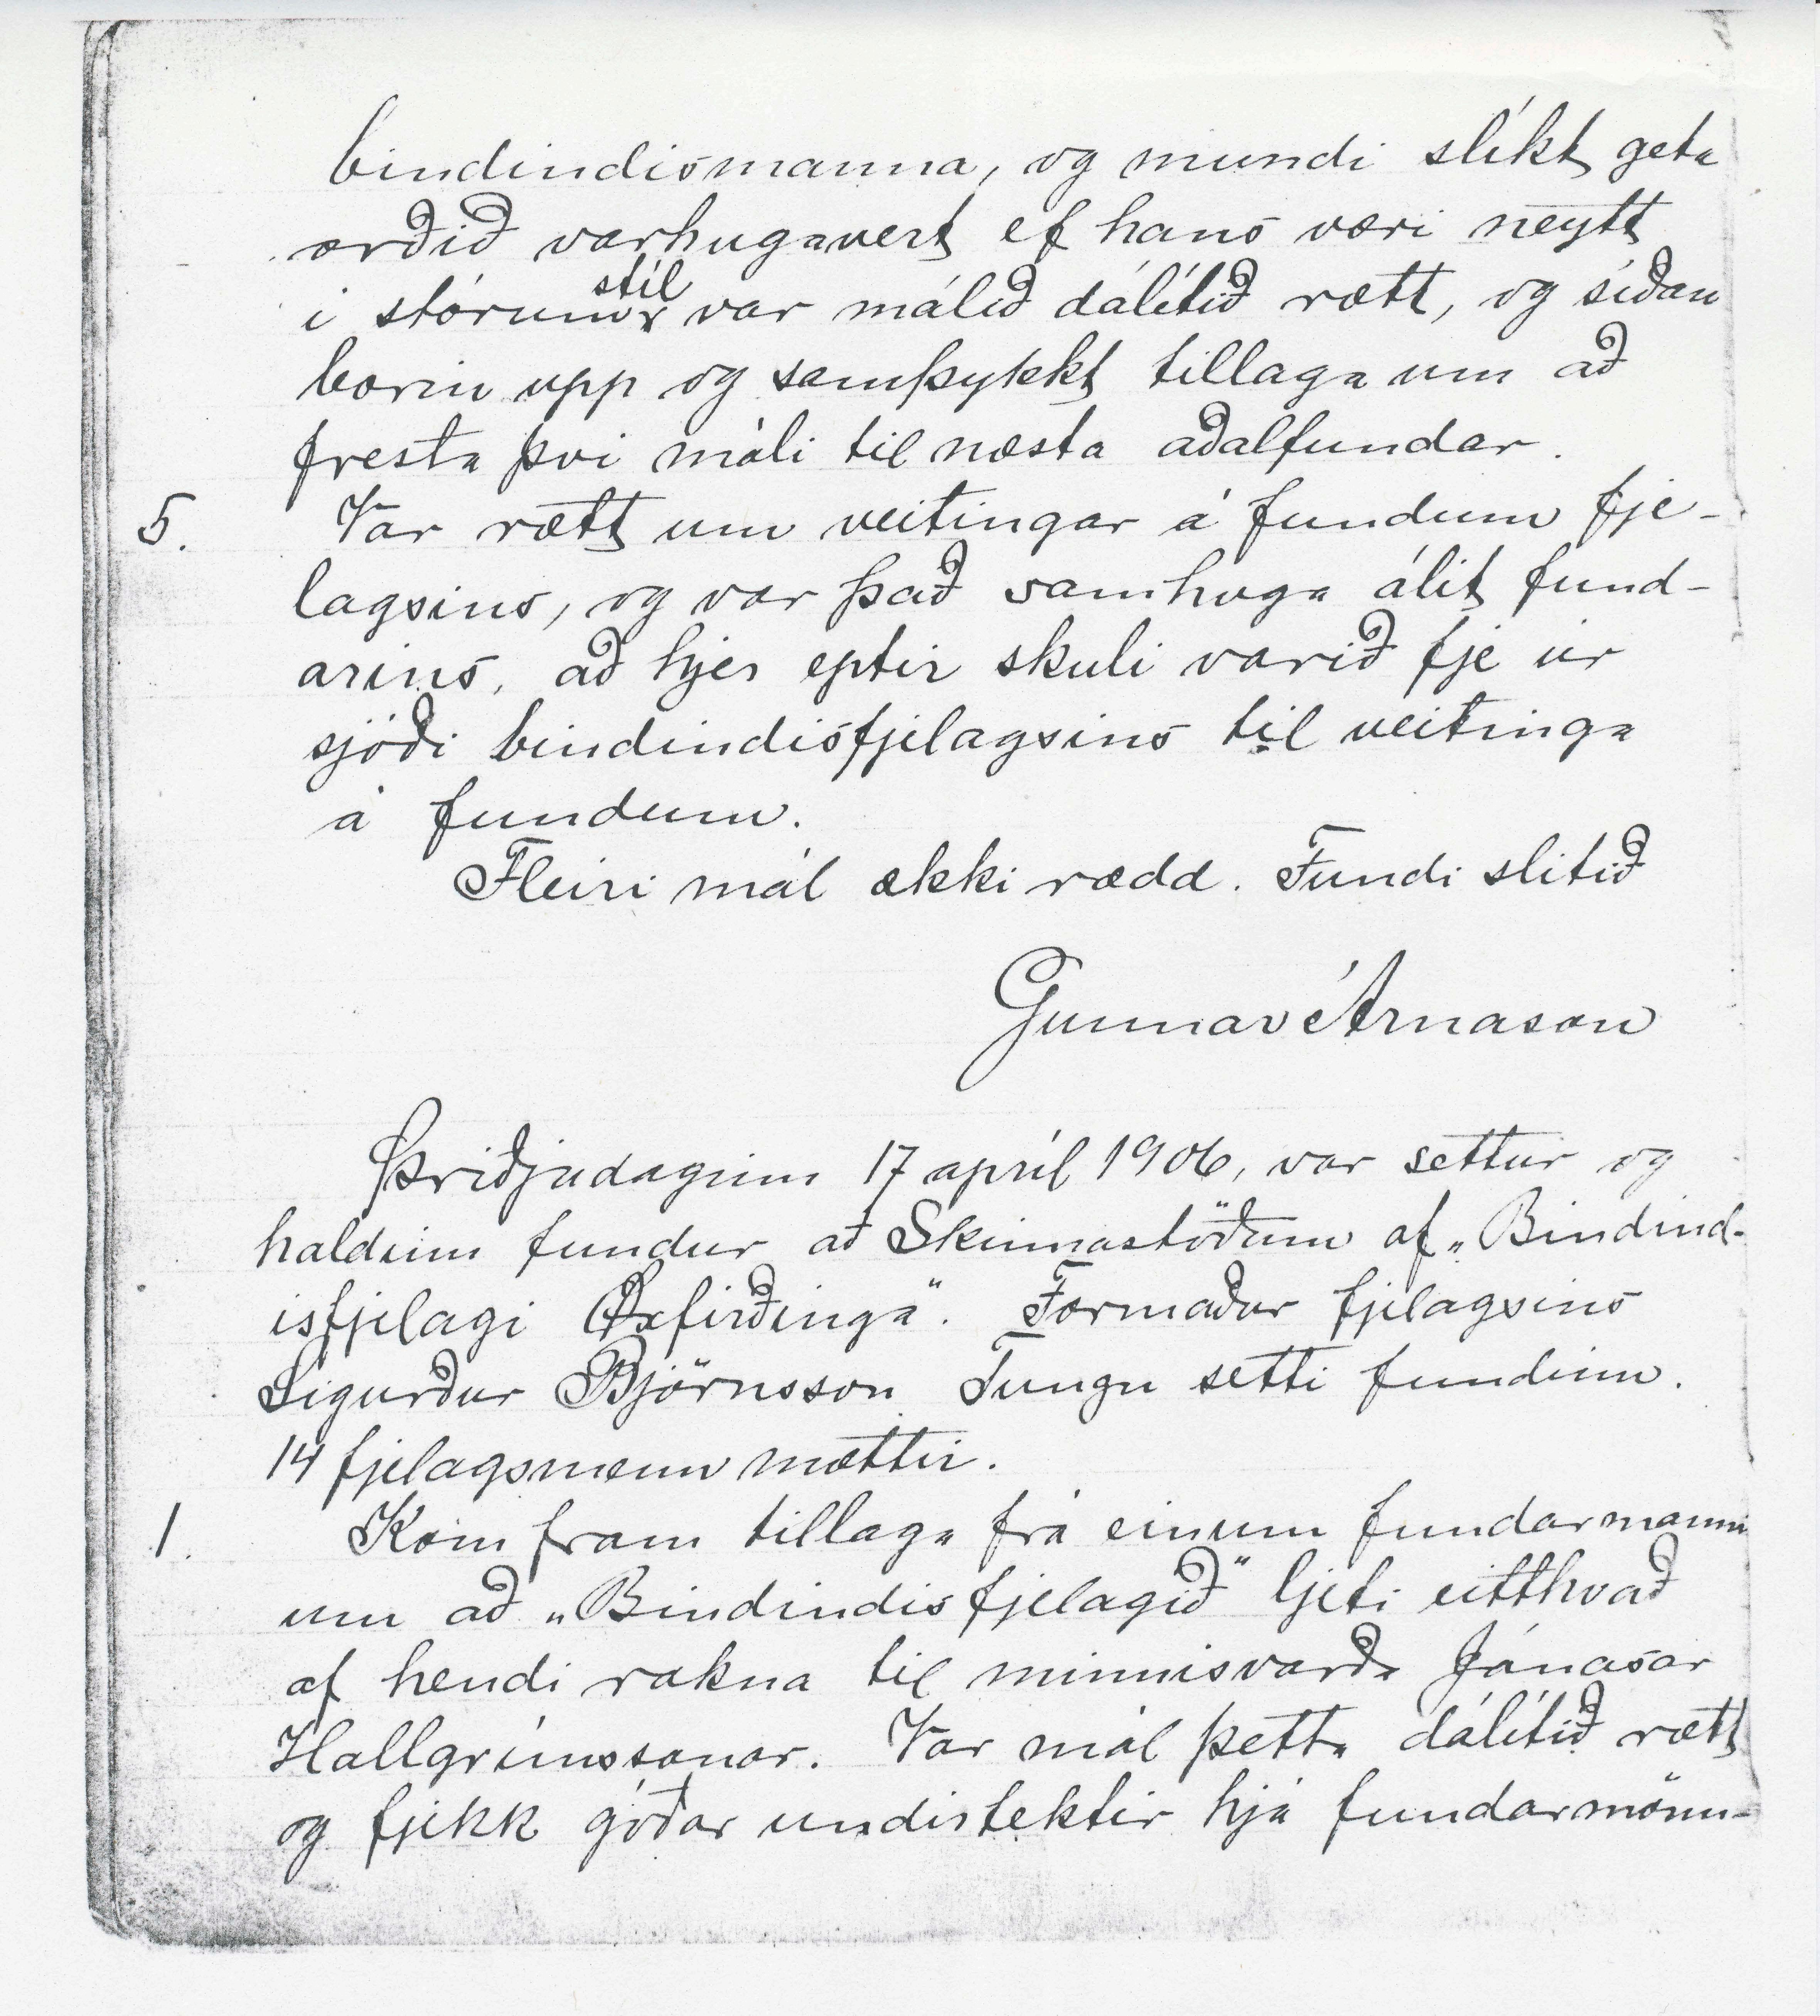 bindindismanna, og mundi slíkt geta
orðið varhugavert ef hans væri neytt
í stórum stíl var málið dálítið rætt, og síðan
borin upp og samþykkt tillaga um að
fresta því máli til næsta aðalfundar.
5. Var rætt um veitingar á fundum fje-
lagsins, og var það samhuga álit fund-
arins, að hjer eptir skuli varið fje úr
sjóði bindindisfjelagsins til veitinga
á fundum.
Fleiri mál ekki rædd. Fundi slitið
Gunnar Árnason
Þriðjudaginn 17 apríl 1906, var settur og
haldinn fundur að Skinnastöðum af „Bindind-
isfjelagi Öxfirðinga“. Formaður fjelagsins
Sigurður Björnsson Tungu setti fundinn.
14 fjelagsmenn mættir.
1. Kom fram tillaga frá einum fundarmanni
um að „Bindindisfjelagið“ ljeti eitthvað
af hendi rakna til minnisvarða Jónasar
Hallgrímssonar. Var mál þetta dálítið rætt
og fjekk góðar undirtektir hjá fundarmönn-